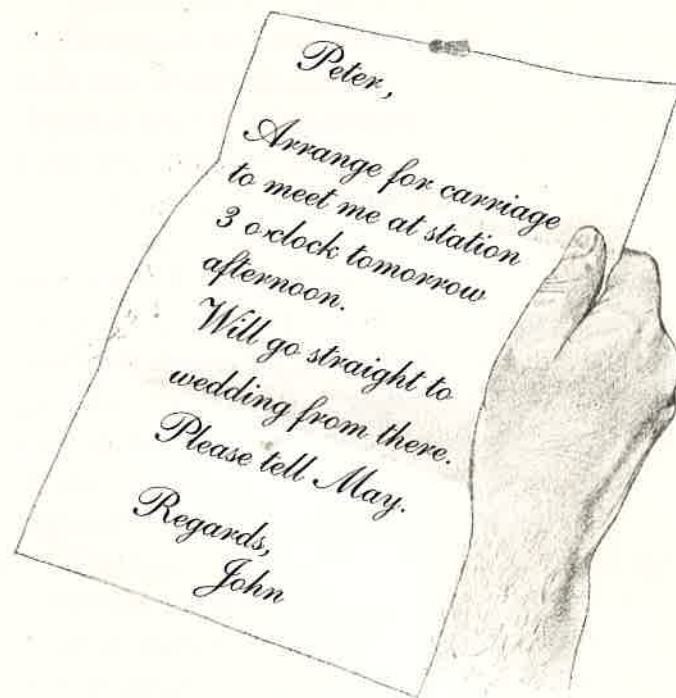 Peter,
Arrange for carriage
to meet me at station
3 o'clock tomorrow
afternoon.
Will go straight to
wedding from there.
Please tell May.
Regards,
John